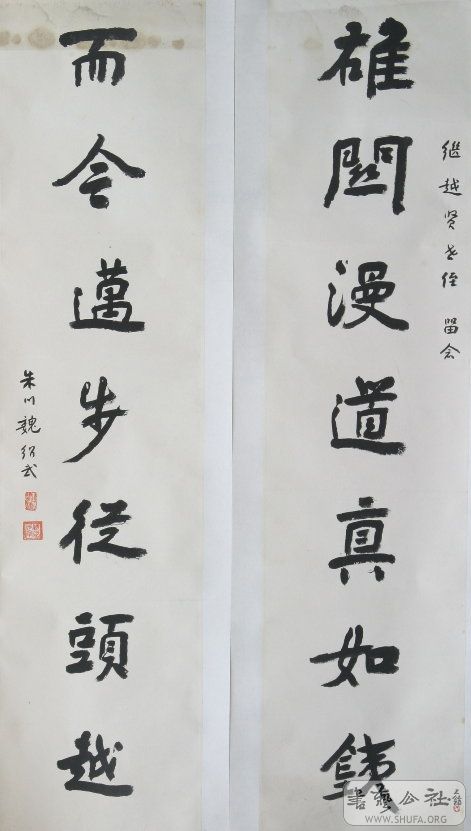 雄關漫道真如鐵
继越贤老侄 留念
而今邁步從頭越
朱川魏绍武
書法公社
WWW.SHUFA.ORG